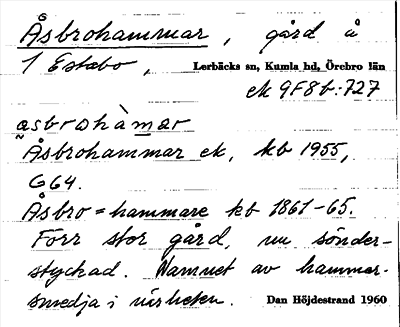 Åsbrohammar, gård å
1 Estabo, Lerbäcks sn, Kumla hd, Örebro län
ek 9F8b:727
asbrohàmar
Åsbrohammar ek, kb 1955,
G64.
Åsbro=hammare kb 1861-65.
Förr stor gård, nu sönder-
styckad. Namnet av hammar-
smedja i närheten. Dan Höjdestrand 1960